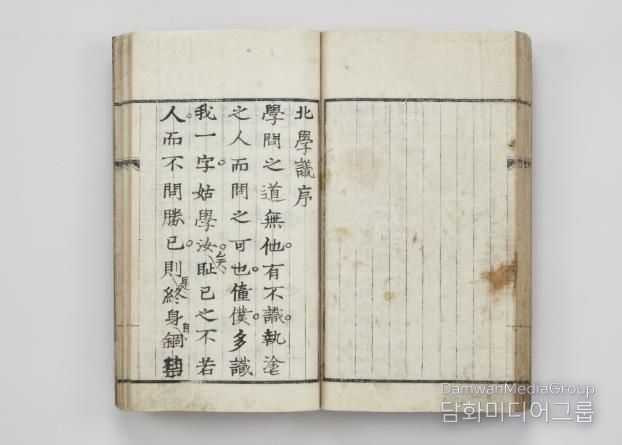 北學議序
學問之道無他。有不識。執塗
之人而問之可也。僮僕。多識
我一字。姑學汝。矣恥己之不若
人而不問勝己。則是終身自錮
DamwanMediaGroup
담화미디어그룹